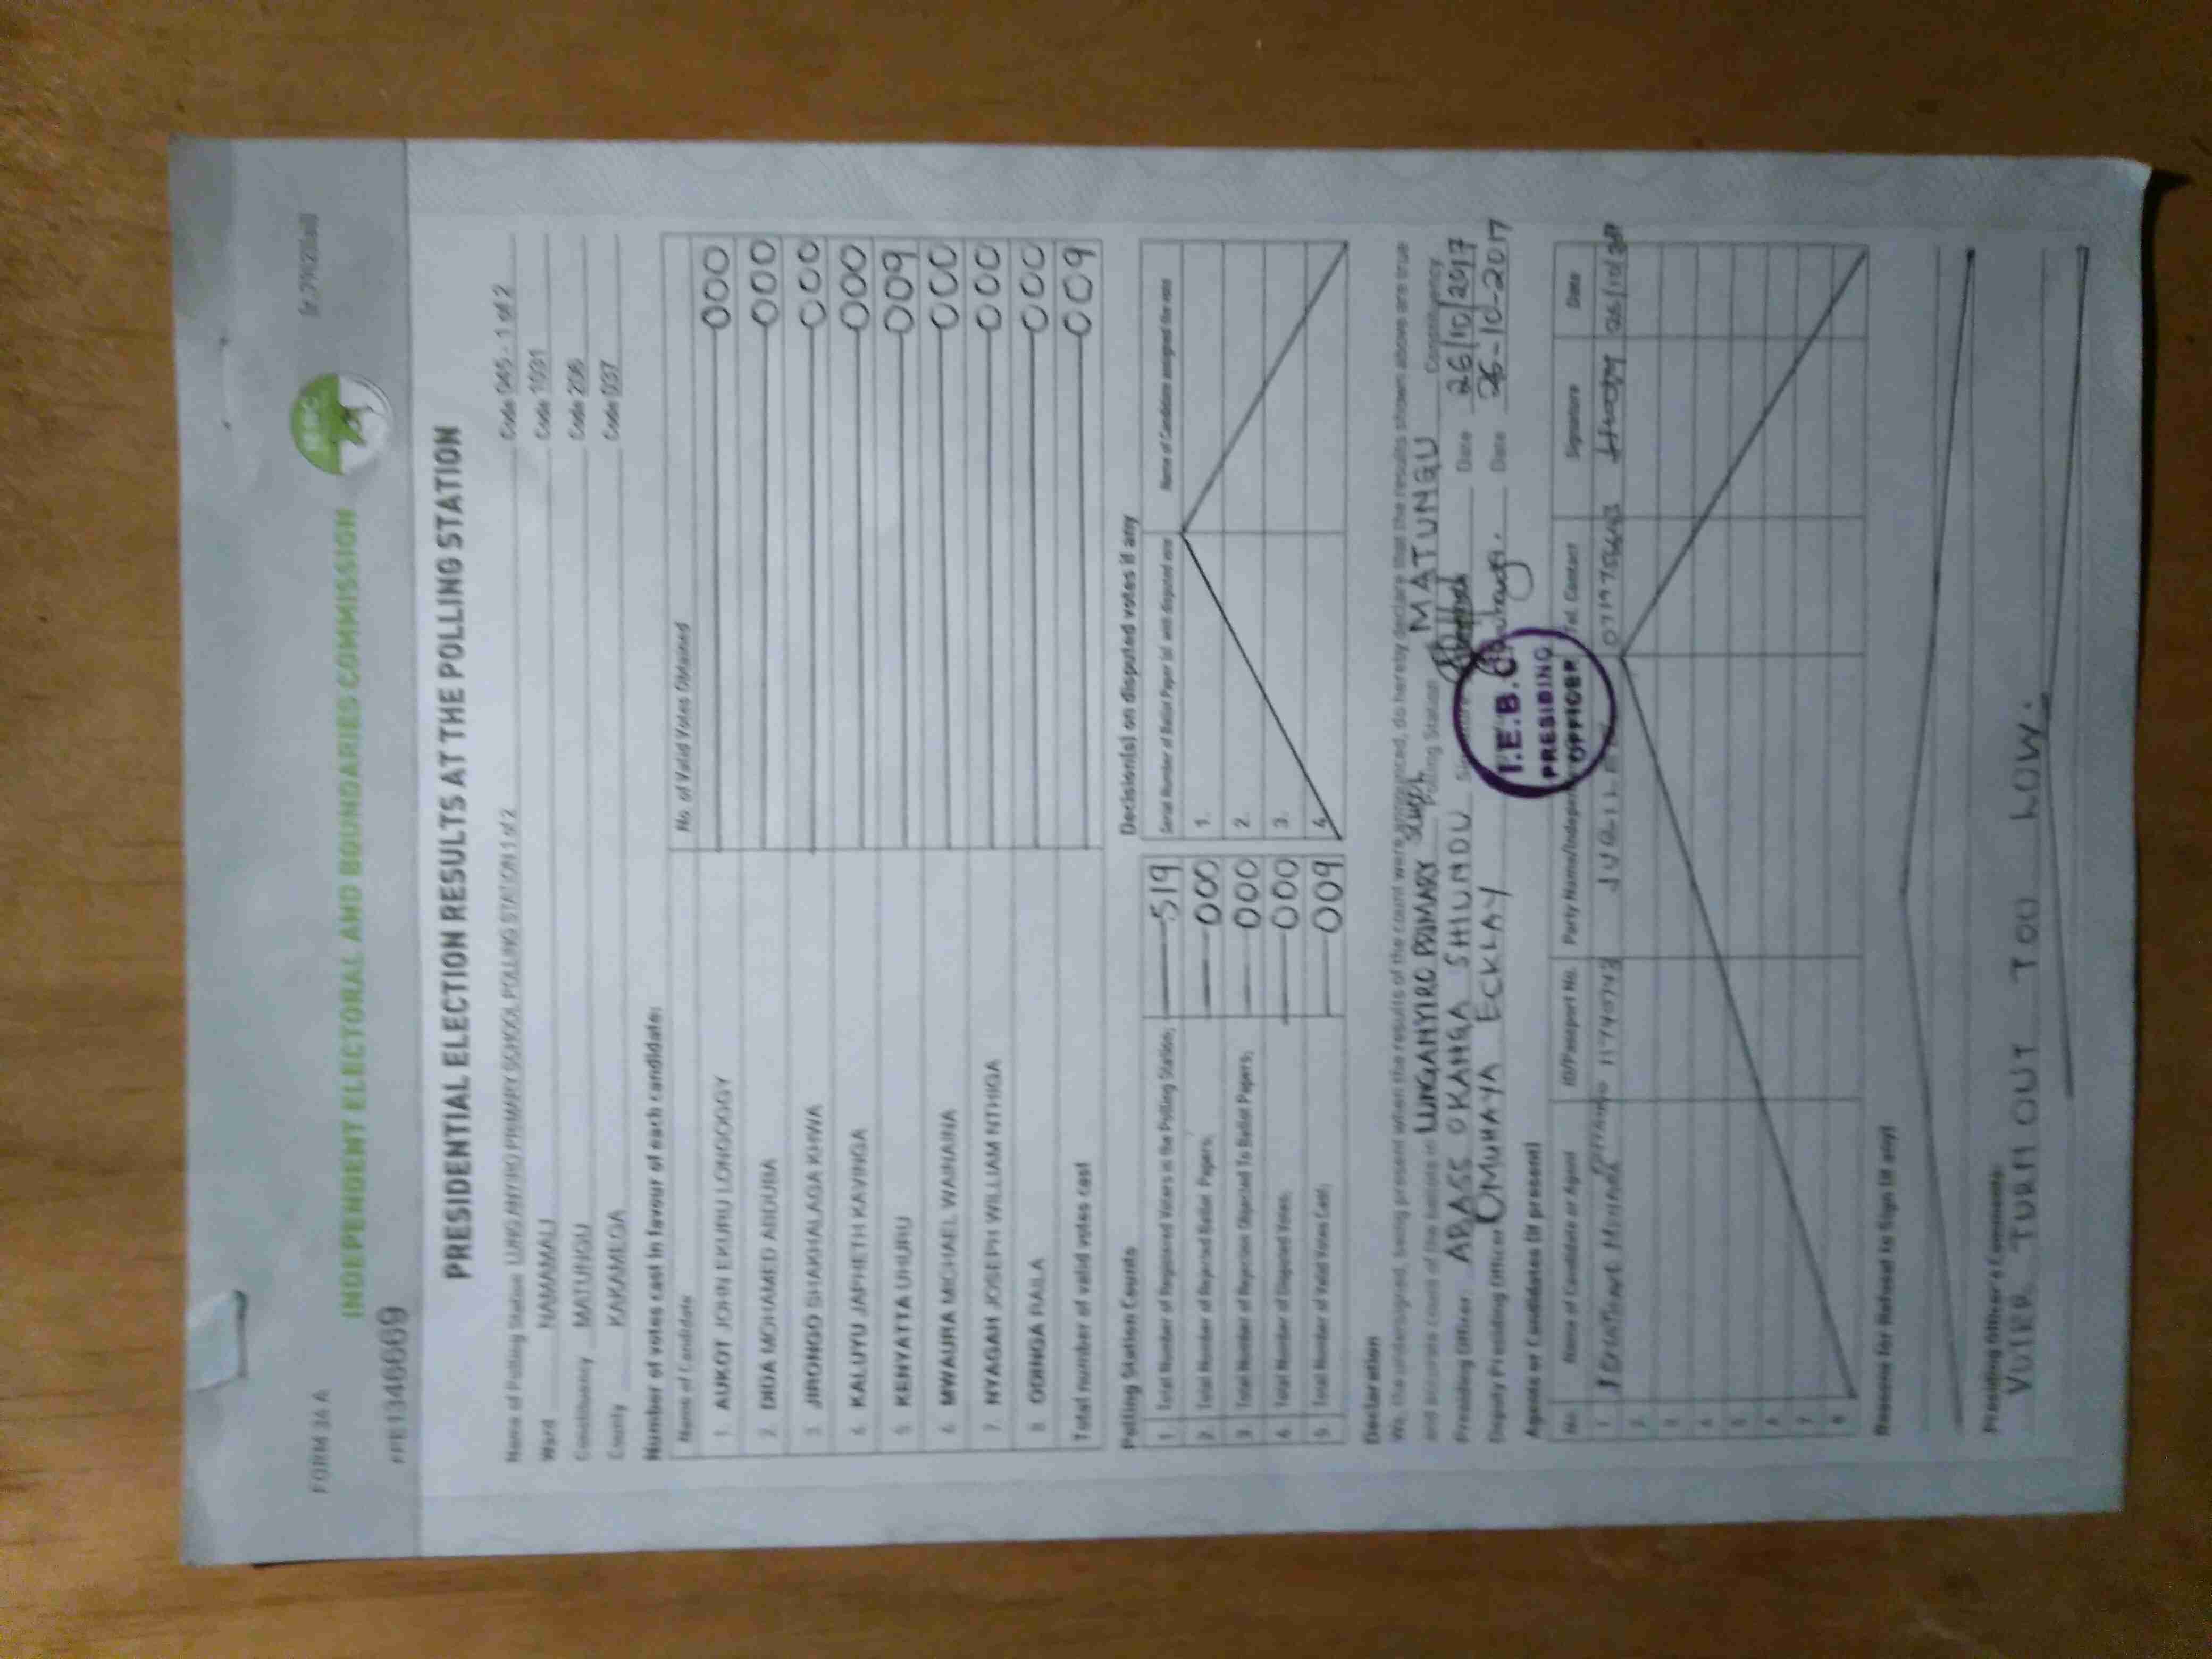 FORM 34 A
(r.79(2)(a))
INDEPENDENT ELECTORAL AND BOUNDARIES COMMISSION
IEBC
PRESIDENTIAL ELECTION RESULTS AT THE POLLING STATION
Name of Polling Station LUNGANYIRO PRIMARY SCHOOL POLLING STATION 1 of 2 Code 045 - 1 of 2
Ward NAMAMALI Code 1031
Constituency MATUNGU Code 206
County KAKAMEGA Code 037
Number of votes cast in favour of each candidate:
Name of Candidate No. of Valid Votes Obtained
1. AUKOT JOHN EKURU LONGOGGY 000
2. DIDA MOHAMED ABDUBA 000
3. JIRONGO SHAKHALAGA KHWA 000
4. KALUYU JAPHETH KAVINGA 000
5. KENYATTA UHURU 009
6. MWAURA MICHAEL WAINAINA 000
7. NYAGAH JOSEPH WILLIAM NTHIGA 000
8. ODINGA RAILA 000
Total number of valid votes cast 009
Polling Station Counts
1. Total Number of Registered Voters in the Polling Station; 519
2. Total Number of Rejected Ballot Papers; 000
3. Total Number of Rejection Objected To Ballot Papers; 000
4. Total Number of Disputed Votes; 000
5. Total Number of Valid Votes Cast; 009
Decision(s) on disputed votes if any
Serial Number of Ballot Paper (s) with disputed vote Name of Candidate assigned the vote
1.
2.
3.
4.
Declaration
We, the undersigned, being present when the results of the count were announced, do hereby declare that the results shown above are true
and accurate count of the ballots in LUNGANYIRO PRIMARY Polling Station MATUNGU Constituency
Presiding Officer Date 26/10/2017
Deputy Presiding Officer OMUHAYA ECKLAY Date 26-10-2017
I.E.B.C.
PRESIDING
OFFICER
Agents or Candidates (if present)
No. Name of Candidate or Agent ID/Passport No. Tel. Contact Signature Date
1 JUBILEE
2
3
4
5
6
7
8
Reasons for Refusal to Sign (if any)
Presiding Officer's Comments:
VOTER TURN OUT TOO LOW.